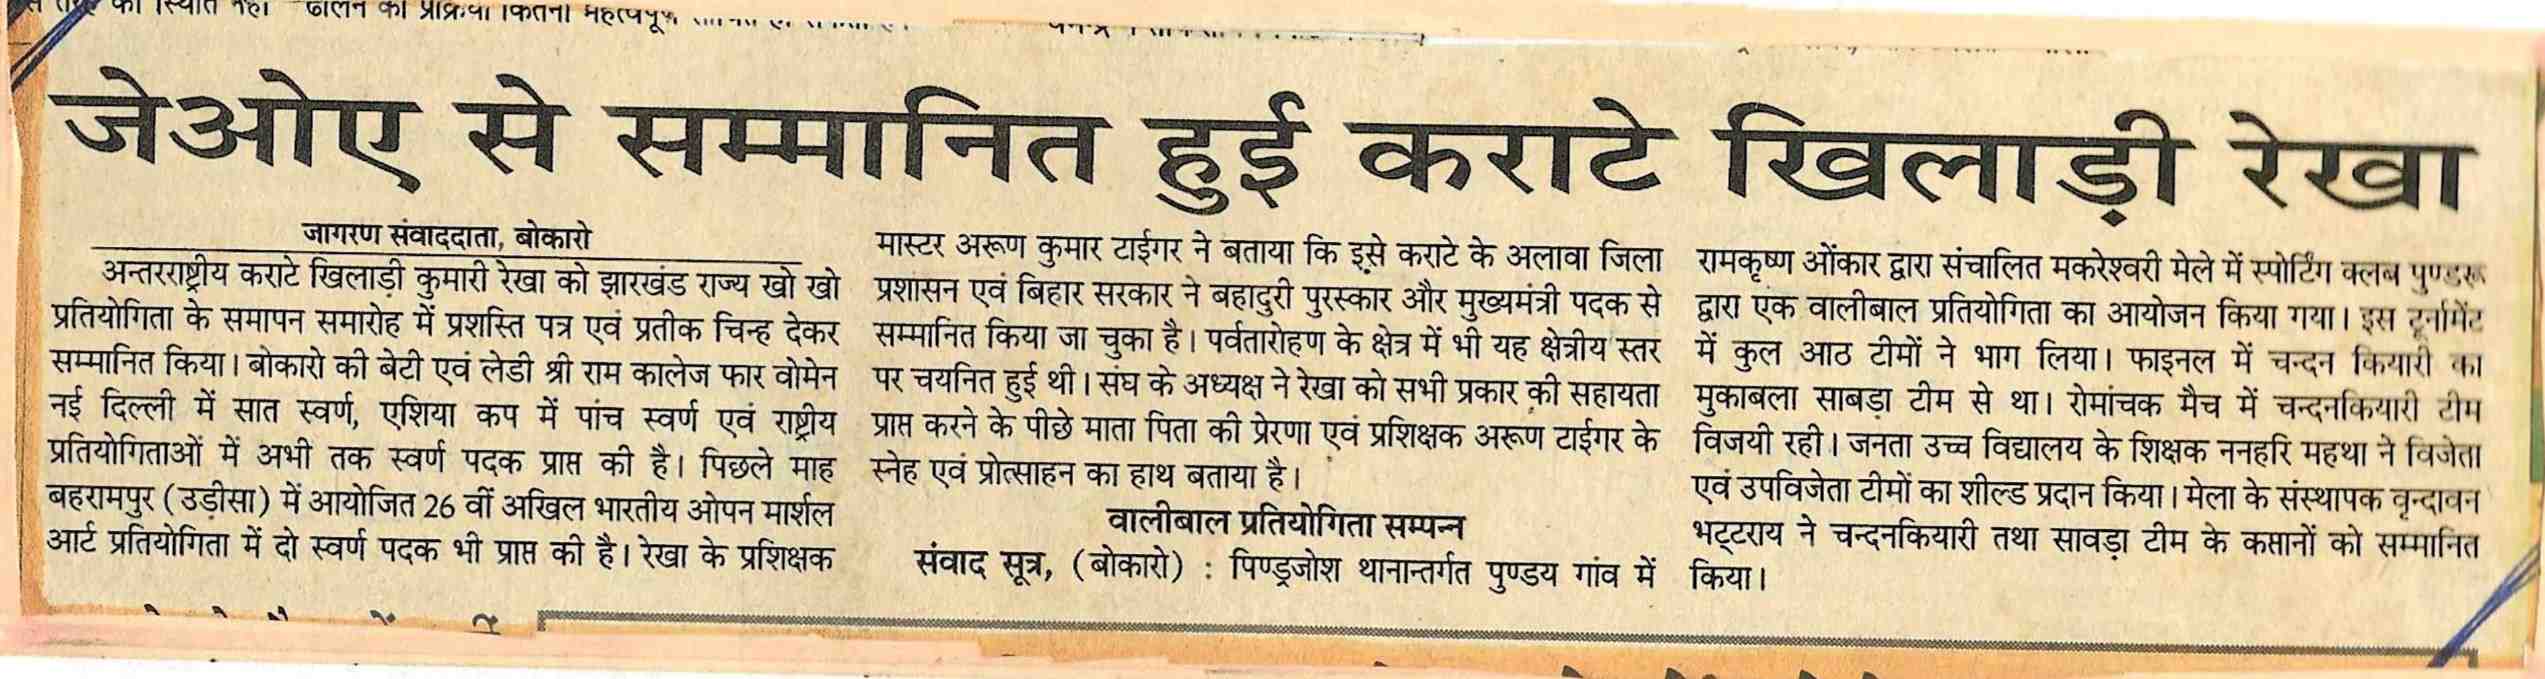 की स्थिति नहीं ढालने की प्रक्रिया कितनी महत्वपूर्ण
जेओए से सम्मानित हुई कराटे खिलाड़ी रेखा
जागरण संवाददाता, बोकारो
अन्तरराष्ट्रीय कराटे खिलाड़ी कुमारी रेखा को झारखंड राज्य खो खो
प्रतियोगिता के समापन समारोह में प्रशस्ति पत्र एवं प्रतीक चिन्ह देकर
सम्मानित किया। बोकारो की बेटी एवं लेडी श्री राम कालेज फार वोमेन
नई दिल्ली में सात स्वर्ण, एशिया कप में पांच स्वर्ण एवं राष्ट्रीय
प्रतियोगिताओं में अभी तक स्वर्ण पदक प्राप्त की है। पिछले माह
बहरामपुर (उड़ीसा) में आयोजित 26 वीं अखिल भारतीय ओपन मार्शल
आर्ट प्रतियोगिता में दो स्वर्ण पदक भी प्राप्त की है। रेखा के प्रशिक्षक
मास्टर अरूण कुमार टाईगर ने बताया कि इसे कराटे के अलावा जिला
प्रशासन एवं बिहार सरकार ने बहादुरी पुरस्कार और मुख्यमंत्री पदक से
सम्मानित किया जा चुका है। पर्वतारोहण के क्षेत्र में भी यह क्षेत्रीय स्तर
पर चयनित हुई थी। संघ के अध्यक्ष ने रेखा को सभी प्रकार की सहायता
प्राप्त करने के पीछे माता पिता की प्रेरणा एवं प्रशिक्षक अरूण टाईगर के
स्नेह एवं प्रोत्साहन का हाथ बताया है।
वालीबाल प्रतियोगिता सम्पन्न
संवाद सूत्र, (बोकारो) : पिण्ड्रजोश थानान्तर्गत पुण्डय गांव में
रामकृष्ण ओंकार द्वारा संचालित मकरेश्वरी मेले में स्पोर्टिंग क्लब पुण्डरू
द्वारा एक वालीबाल प्रतियोगिता का आयोजन किया गया। इस टूर्नामेंट
में कुल आठ टीमों ने भाग लिया। फाइनल में चन्दन कियारी का
मुकाबला साबड़ा टीम से था। रोमांचक मैच में चन्दनकियारी टीम
विजयी रही। जनता उच्च विद्यालय के शिक्षक ननहरि महथा ने विजेता
एवं उपविजेता टीमों का शील्ड प्रदान किया। मेला के संस्थापक वृन्दावन
भट्टराय ने चन्दनकियारी तथा सावड़ा टीम के कप्तानों को सम्मानित
किया।